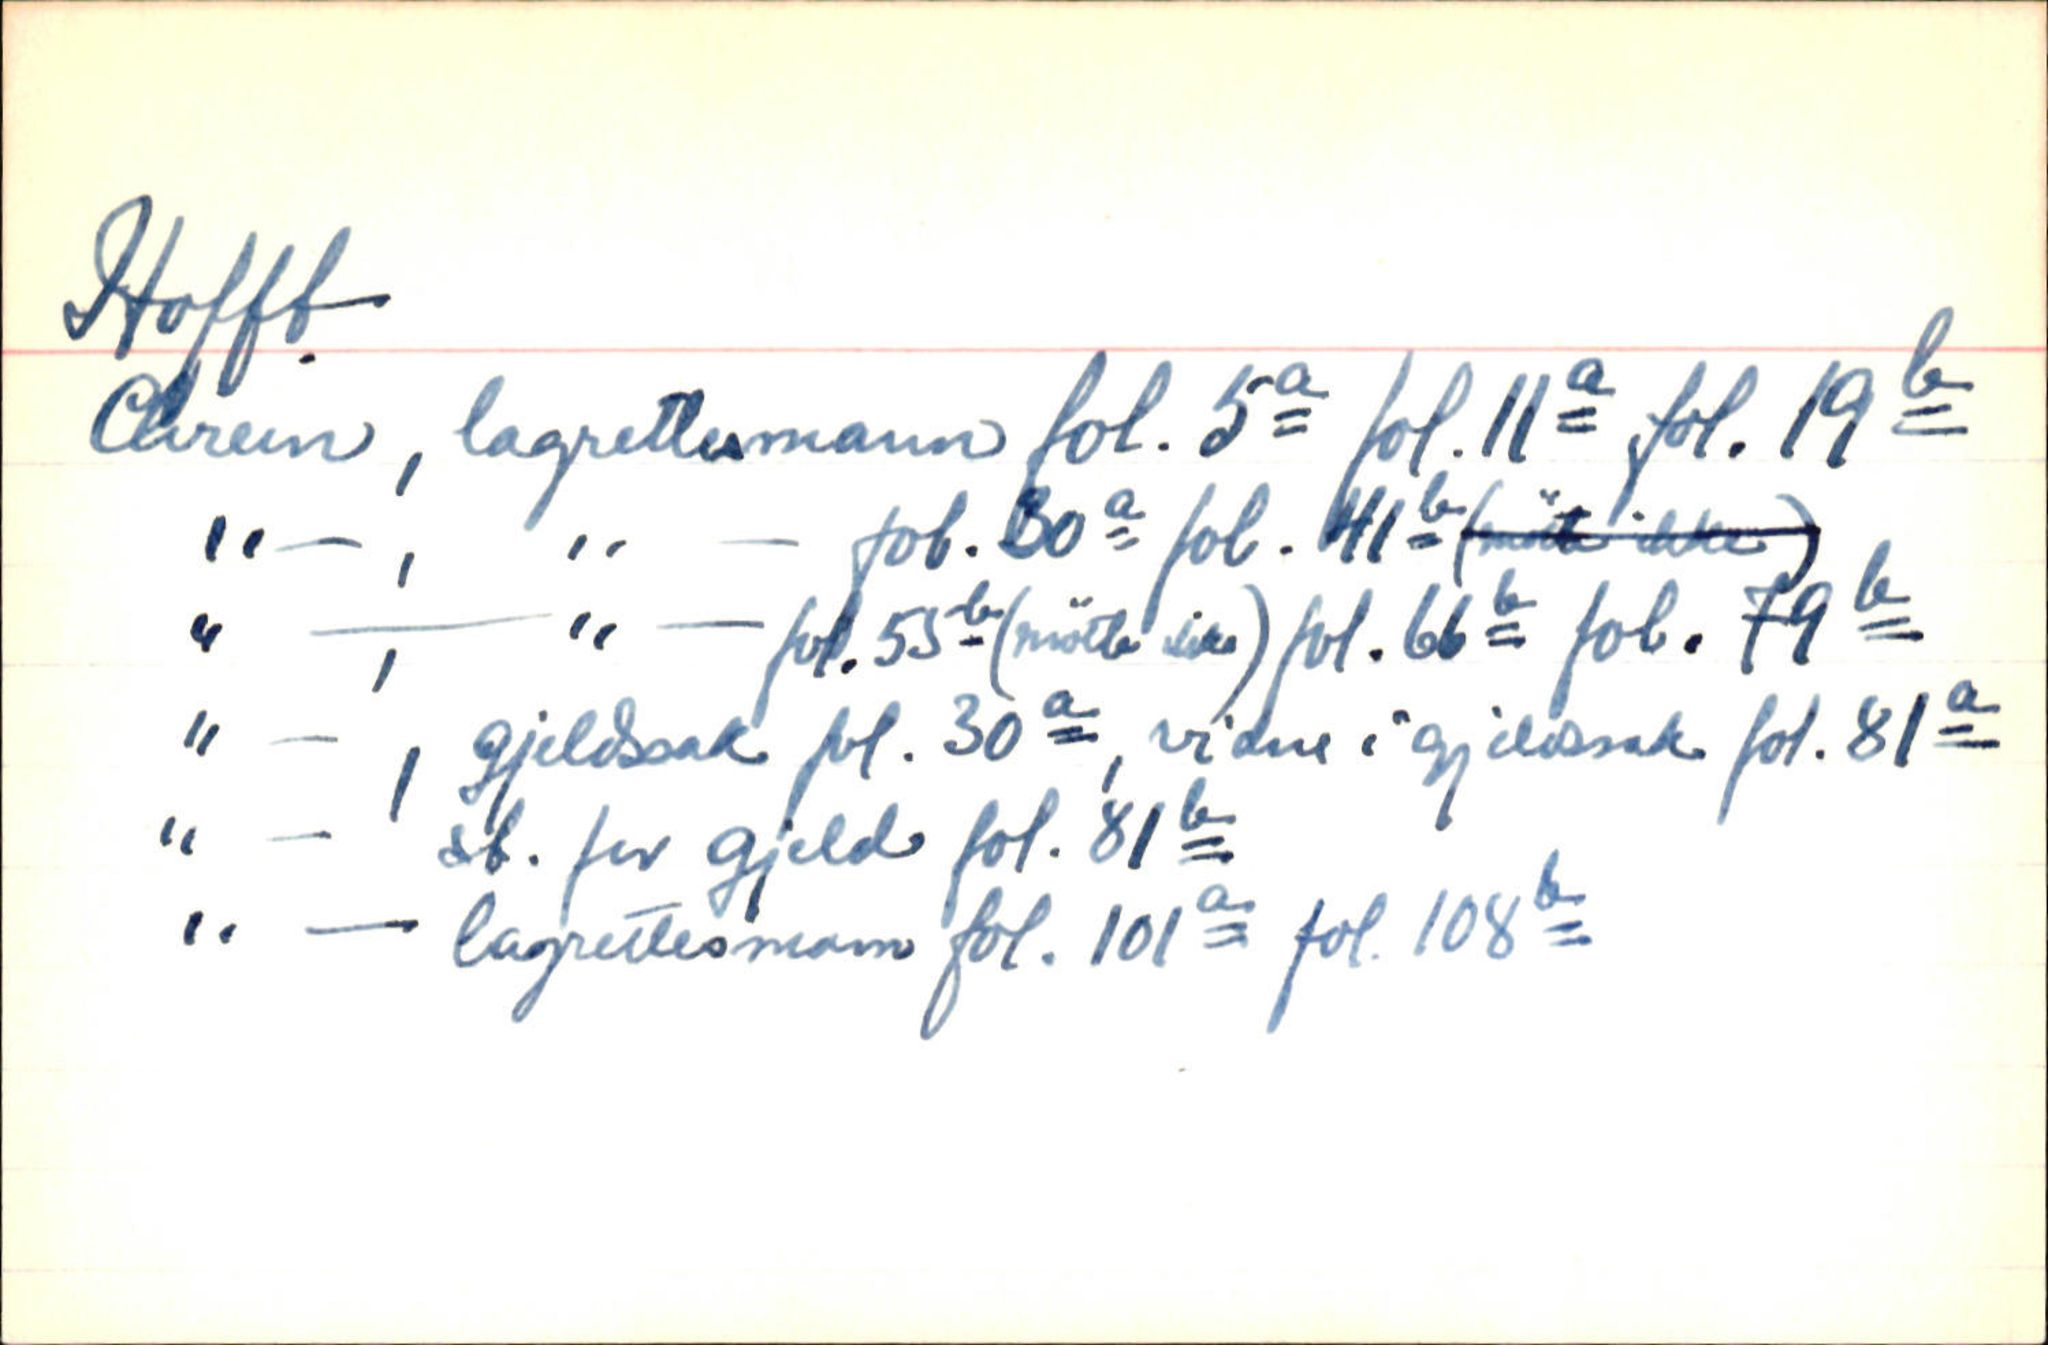 Hoff.
Chrein, lagrettesmann fol. 5a fol. 11a fol. 19b
" — , " — fol. 30a fol. 41b (mötte ikke)
" — , " — fol. 53b (mötte ikke) fol. 66b fol. 79b
" — , gjeldssak fol. 30a, vidne i gjeldssak fol. 81a
" — sb. for gjeld fol. 81b
" — lagrettesmann fol. 101a fol. 108b